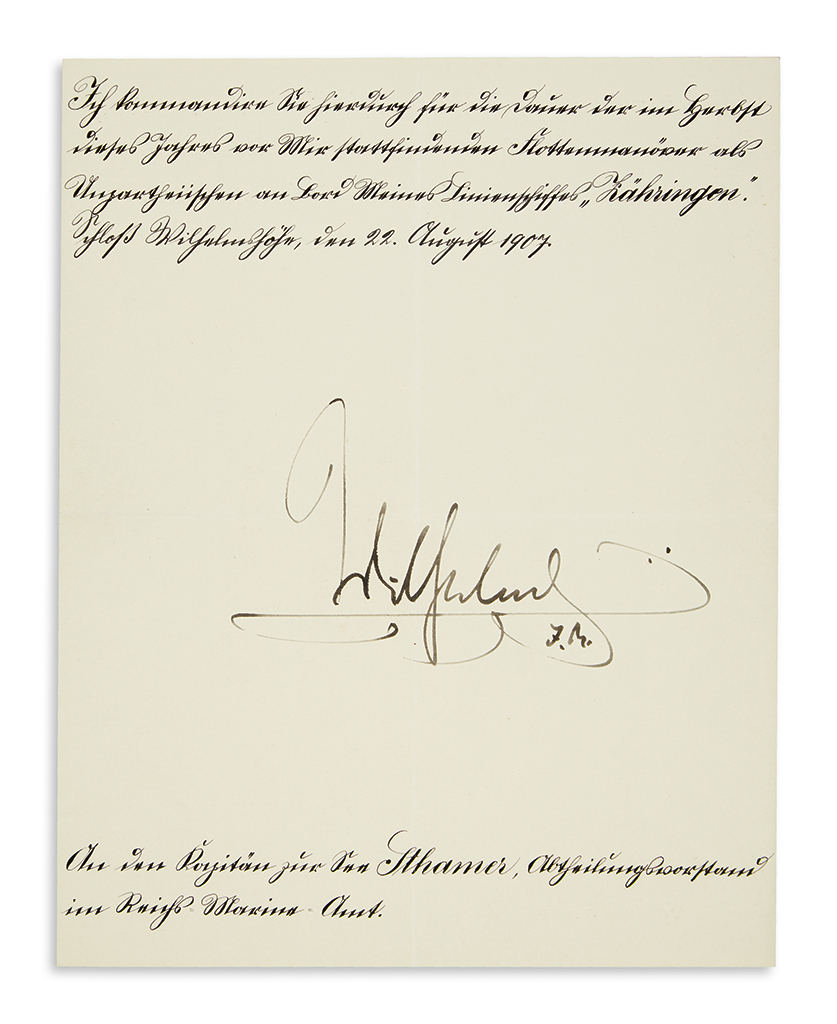 Ich kommandire Sie hierdurch für die Dauer der im Herbst
dieses Jahres vor Mir stattfindenden Flottenmanöver als
Unpartheiischen an Bord Meines Linienschiffes „Zähringen“.
Schloß Wilhelmshöhe, den 22. August 1907.
Wilhelm
I.R.
An den Kapitän zur See Sthamer, Abtheilungsvorstand
im Reichs-Marine-Amt.